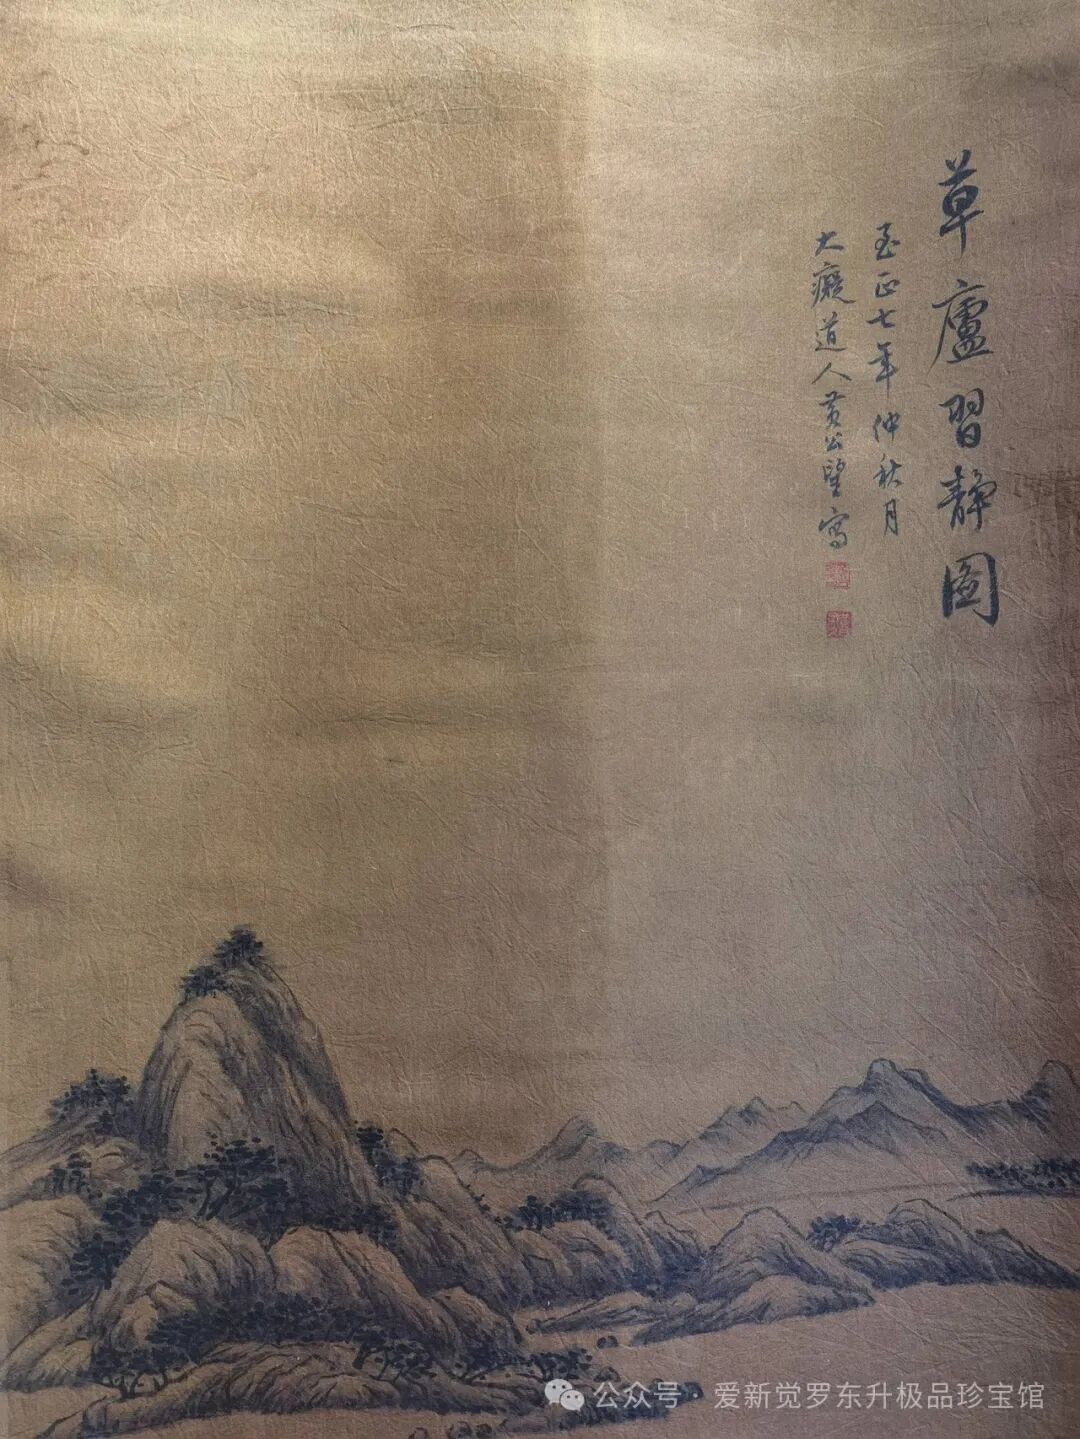 草廬習静圖
至正七年仲秋月
大癡道人黄公望寫
公众号 · 爱新觉罗东升极品珍宝馆